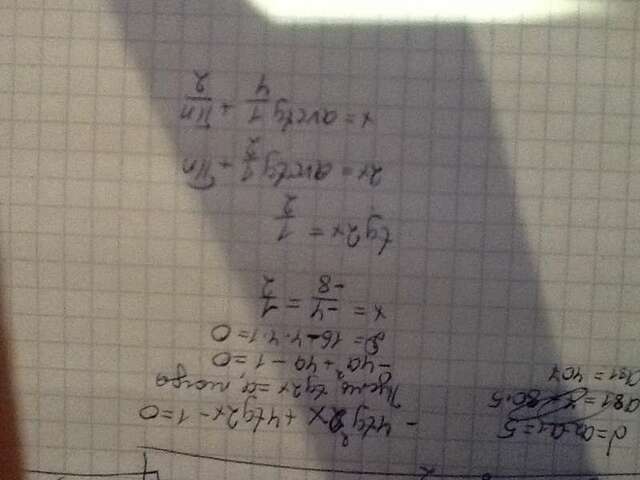 d=a₂-a₁=5
a₈₁=7+80·5
a₈₁=407
-4tg²2x+4tg2x-1=0
Пусть tg2x=a, тогда
-4a²+4a-1=0
D=16-4·4·1=0
x=-4/-8=1/2
tg2x=1/2
2x=arctg1/2+πn
x=arctg1/4+πn/2